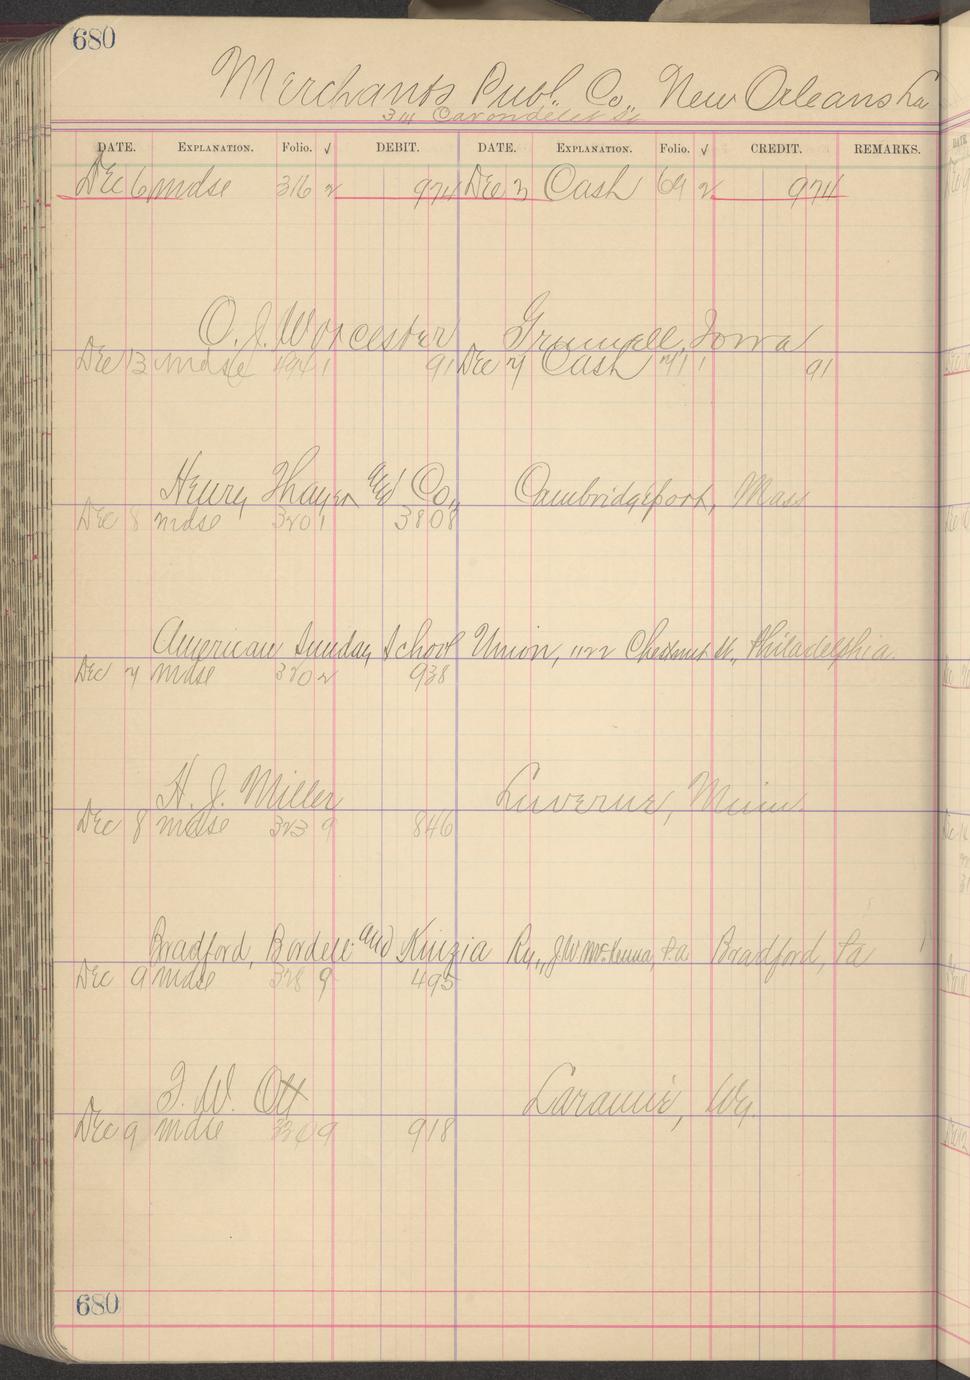 680
Merchants Publ. Co., New Orleans La
311 Carondelet St
DATE. EXPLANATION. Folio. √ DEBIT. DATE. EXPLANATION. Folio. √ CREDIT. REMARKS.
Dec 6 mdse 316 2 974 Dec 3 Cash 69 2 974
O. J. Worcester Grinnell, Iowa
Dec 13 mdse 494 1 91 Dec 7 Cash 71 1 91
Henry Thayer and Co., Cambridgeport, Mass
Dec 8 mdse 320 1 3808
American Sunday School Union, 1122 Chestnut St., Philadelphia
Dec 7 mdse 320 2 938
H. J. Miller Luverne, Minn.
Dec 8 mdse 323 9 846
Bradford, Bordell and Kinzia Ry., J.W. McKenna, Bradford, Pa
Dec 9 mdse 328 9 495
F. W. Ott Laramie, Wy.
Dec 9 mdse 9 918
680